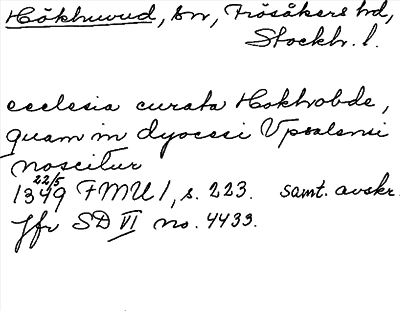 Hökhuvud, sn, Frösåkers hd,
Stockh. l.
ecclesia curata Hokhobde,
quam in dyocesi Vpsalensi
noscitur
1349 22/5 FMU 1, s. 223. samt. avskr.
Jfr SD VI no. 4433.